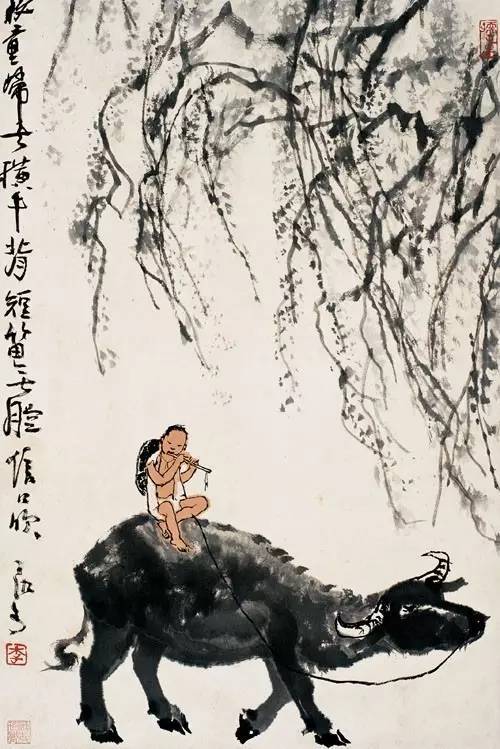 牧童歸去横牛背短笛无腔信口吹
可染
李